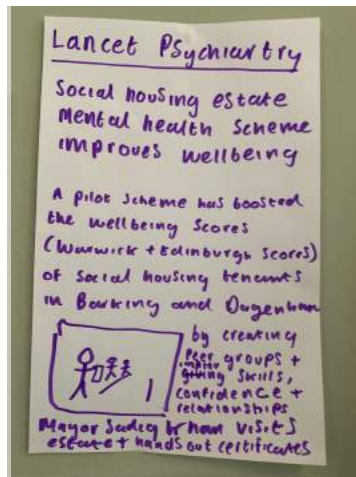 Lancet Psychiartry
Social housing estate
Mental health scheme
improves wellbeing
A pilot scheme has boosted
the wellbeing scores
(Warwick + Edinburgh scores)
of social housing tenants
in Barking and Dagenham
by creating
peer groups +
giving skills,
confidence +
relationships
Mayor Sadiq Khan visits
estate + hands out certificates